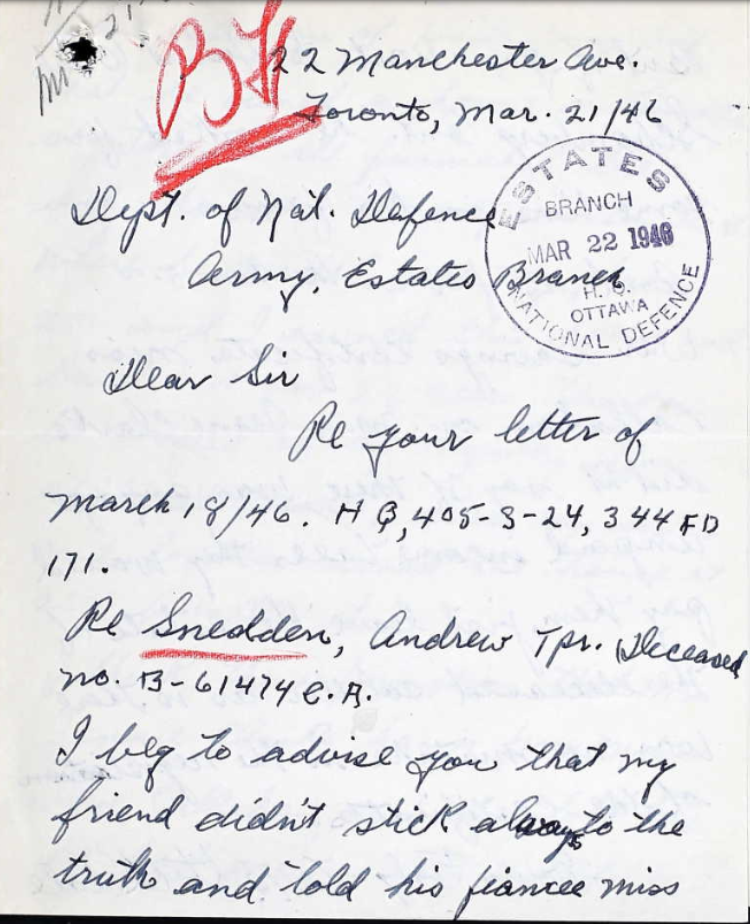 21
BF
22 Manchester Ave.
Toronto, Mar. 21/46
Dept. of Nat. Defence
Army, Estates Branch
ESTATES
BRANCH
MAR 22 1946
H.Q.
OTTAWA
NATIONAL DEFENCE
Dear Sir
Re your letter of
March 18/46. H Q, 405-S-24, 344 FD
171.
Re Snedden, Andrew Tpr. Deceased
no. B-61474 C.A.
I beg to advise you that my
friend didn't stick always to the
truth and told his fiancee miss